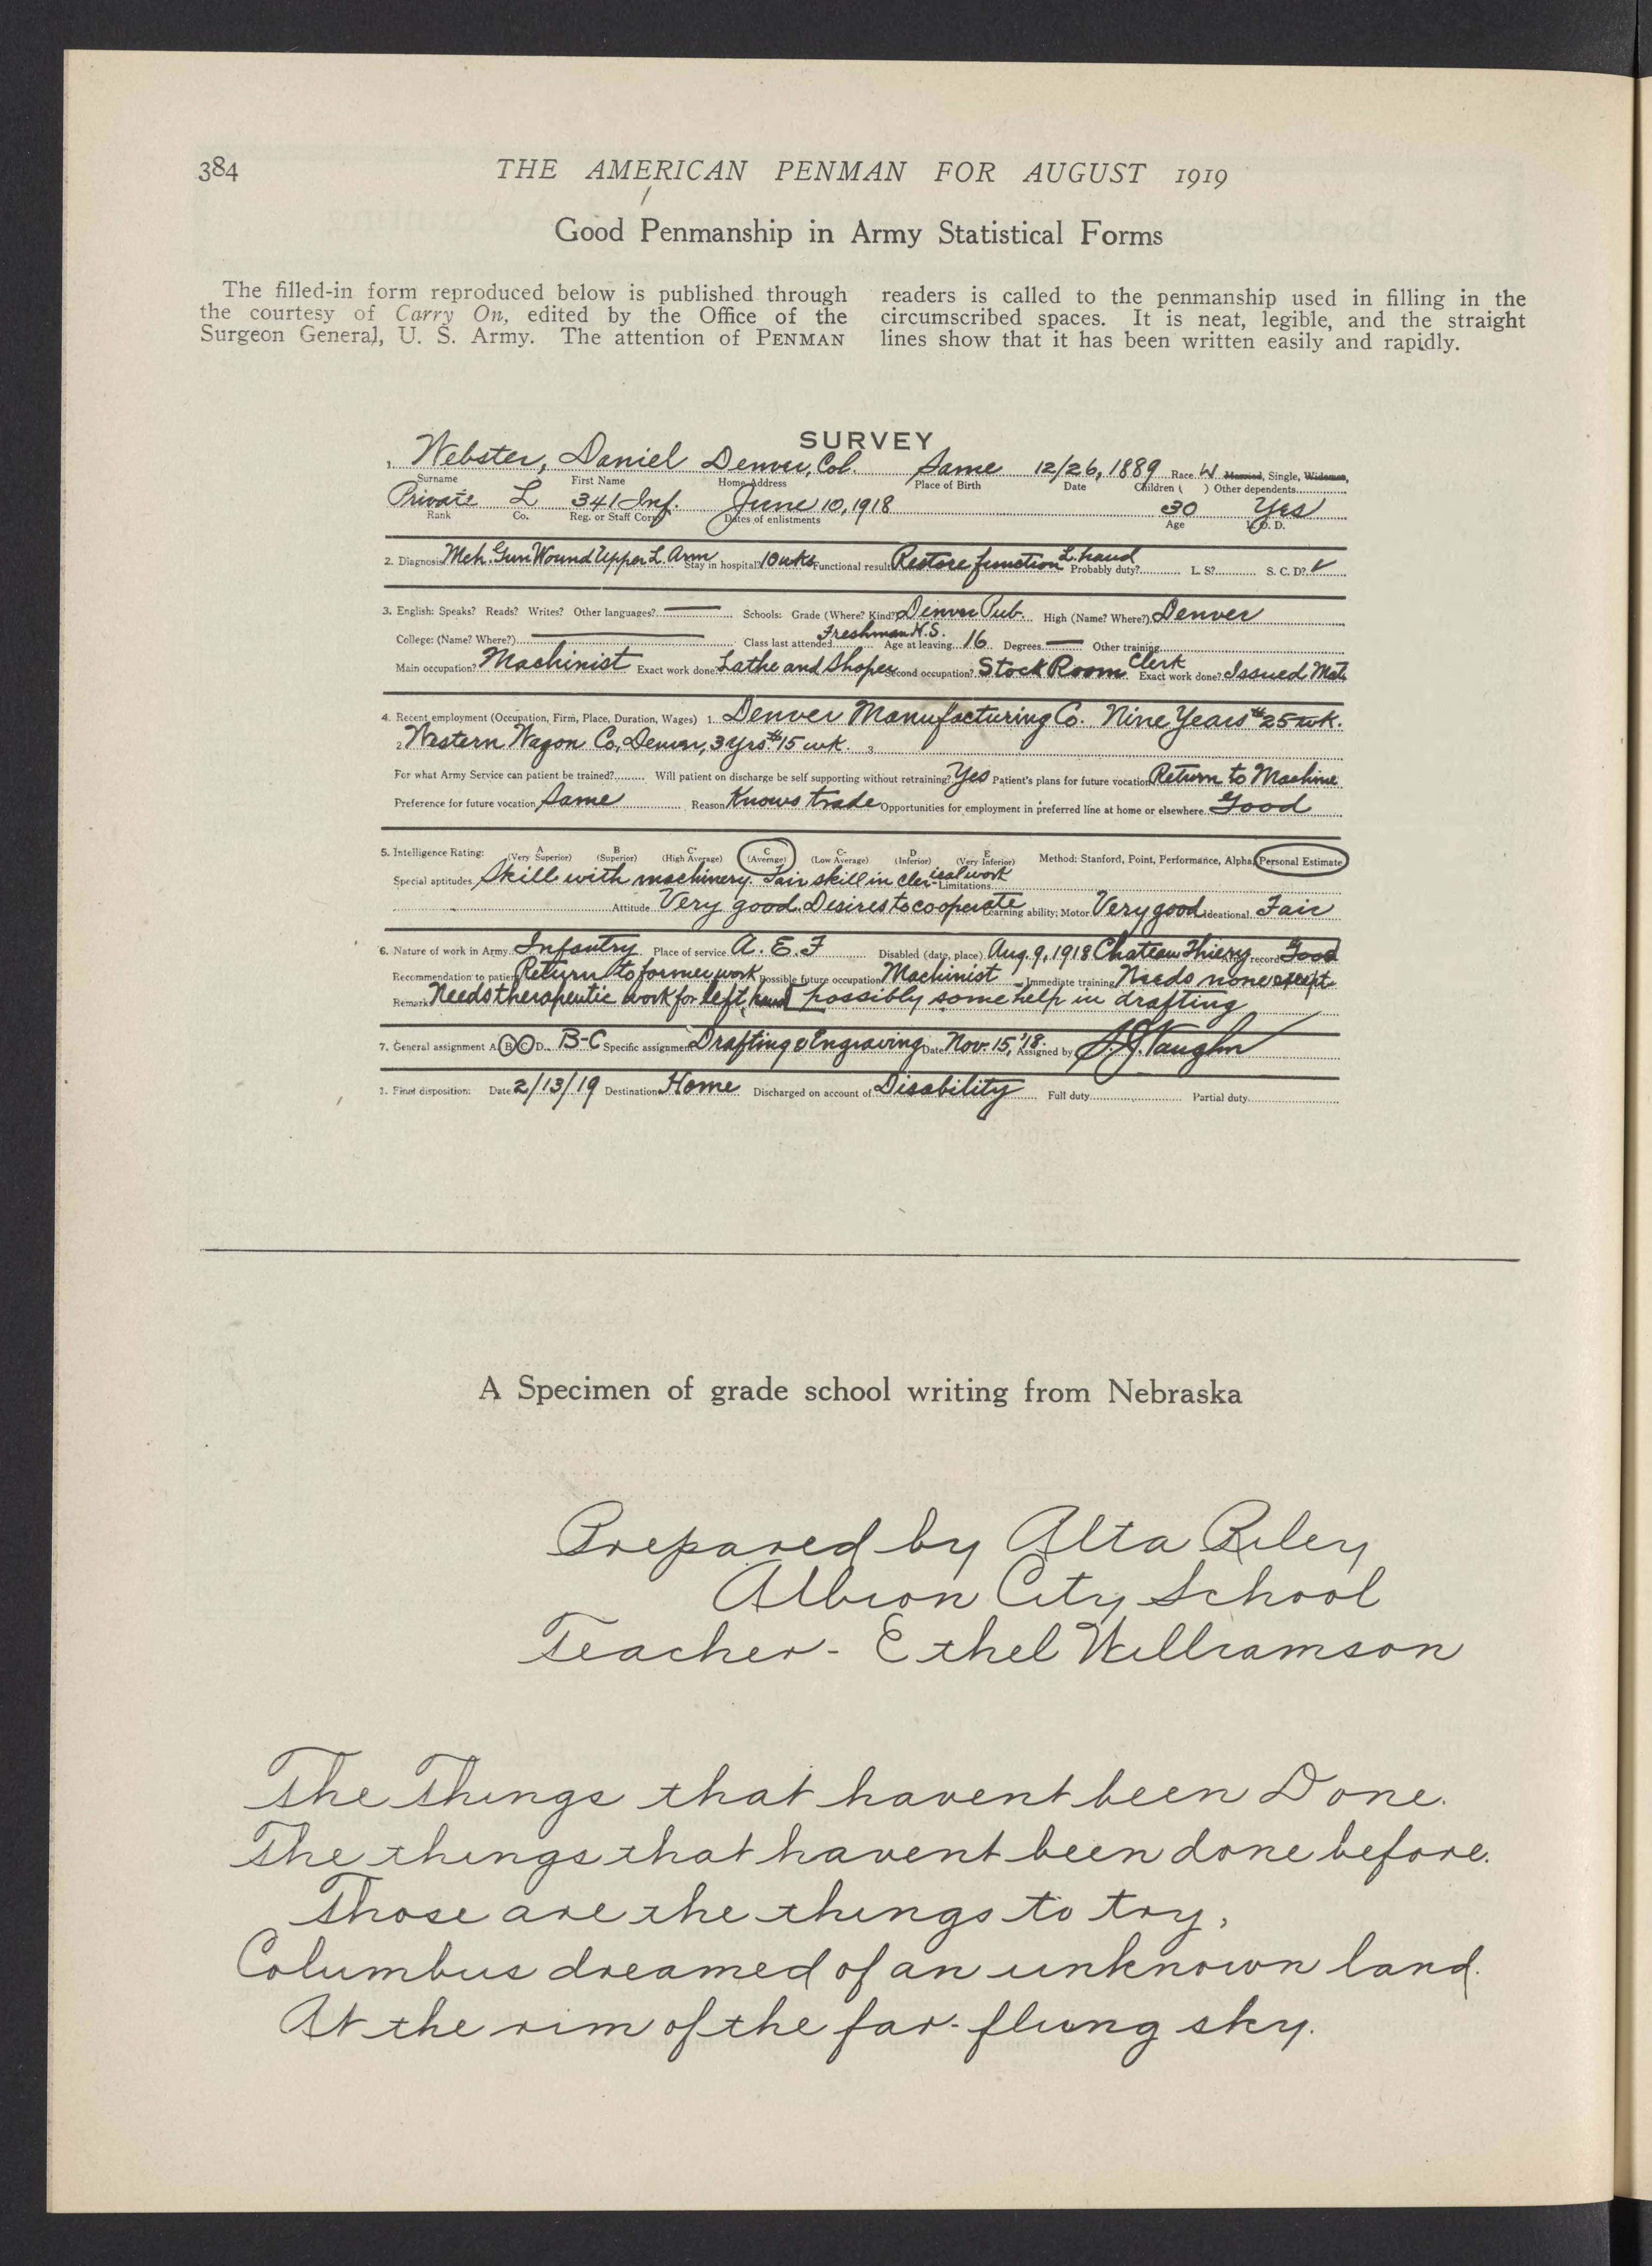 384 THE AMERICAN PENMAN FOR AUGUST 1919
Good Penmanship in Army Statistical Forms
The filled-in form reproduced below is published through
the courtesy of Carry On, edited by the Office of the
Surgeon General, U. S. Army. The attention of PENMAN
readers is called to the penmanship used in filling in the
circumscribed spaces. It is neat, legible, and the straight
lines show that it has been written easily and rapidly.
SURVEY
1. Webster, Daniel Denver, Col. Same 12/26, 1889 Race W Married, Single, Widower,
Surname First Name Home Address Place of Birth Date Children ( ) Other dependents
Private L 341 Inf. June 10, 1918 30 Yes
Rank Co. Reg. or Staff Corp Dates of enlistments Age O. D.
2. Diagnosis Mch. Gun Wound Upper L. Arm Stay in hospital? 10 wks Functional result Restore function L. hand Probably duty? L. S? S. C. D? ✓
3. English: Speaks? Reads? Writes? Other languages? Schools: Grade (Where? Kind?) Denver Pub. High (Name? Where?) Denver
College: (Name? Where?) Class last attended Freshman H.S. Age at leaving 16 Degrees Other training
Main occupation? Machinist Exact work done Lathe and Shaper Second occupation? Stock Room Clerk Exact work done? Issued Mat
4. Recent employment (Occupation, Firm, Place, Duration, Wages) 1. Denver Manufacturing Co. Nine Years $25 wk.
2 Western Wagon Co, Denver, 3 yrs $15 wk. 3
For what Army Service can patient be trained? Will patient on discharge be self supporting without retraining? Yes Patient's plans for future vocation Return to Machine
Preference for future vocation Same Reason Knows trade Opportunities for employment in preferred line at home or elsewhere Good
5. Intelligence Rating: A (Very Superior) B (Superior) C+ (High Average) C (Average) C- (Low Average) D (Inferior) E (Very Inferior) Method: Stanford, Point, Performance, Alpha, Personal Estimate
Special aptitudes Skill with machinery. Fair skill in clerical work Limitations
Attitude Very good. Desires to cooperate Learning ability: Motor Very good Ideational Fair
6. Nature of work in Army Infantry Place of service A. E. F Disabled (date, place) Aug. 9, 1918 Chateau Thiery record Good
Recommendation to patient Return to former work Possible future occupation Machinist Immediate training Needs none except
Remark Needs therapeutic work for left hand possibly some help in drafting
7. General assignment A B C D B-C Specific assignment Drafting & Engraving Date Nov. 15, '18. Assigned by S.J. Vaughn
1. Final disposition: Date 2/13/19 Destination Home Discharged on account of Disability Full duty Partial duty
A Specimen of grade school writing from Nebraska
Prepared by Alta Riley
Albion City School
Teacher - Ethel Williamson
The Things that havent been Done.
The things that havent been done before.
Those are the things to try,
Columbus dreamed of an unknown land.
At the rim of the far-flung sky.